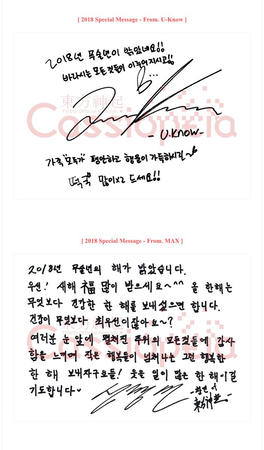 [ 2018 Special Message - From. U-Know ]
2018년 무술년이 밝았네요!!
바라시는 모든것들이 이루어지시고!!
東方神起
Cassiopeia
- U.Know -
가족 "모두"가 평안하고 행운이 가득하시길~
떡국 많이드세요!!
[ 2018 Special Message - From. MAX ]
2018년 무술년의 해가 밝았습니다.
우선! 새해 福 많이 받으세요~^^ 올 한해는
무엇보다 건강한 한 해를 보내셨으면 합니다.
건강이 무엇보다 최우선이잖아요~?
여러분 눈 앞에 펼쳐진 주위의 모든것들에 감사
함을 느끼며 작은 행복들이 넘쳐나는 그런 행복한
한 해 보내자구요들! 웃을 일이 많은 한 해이길
기도합니다
東方神起